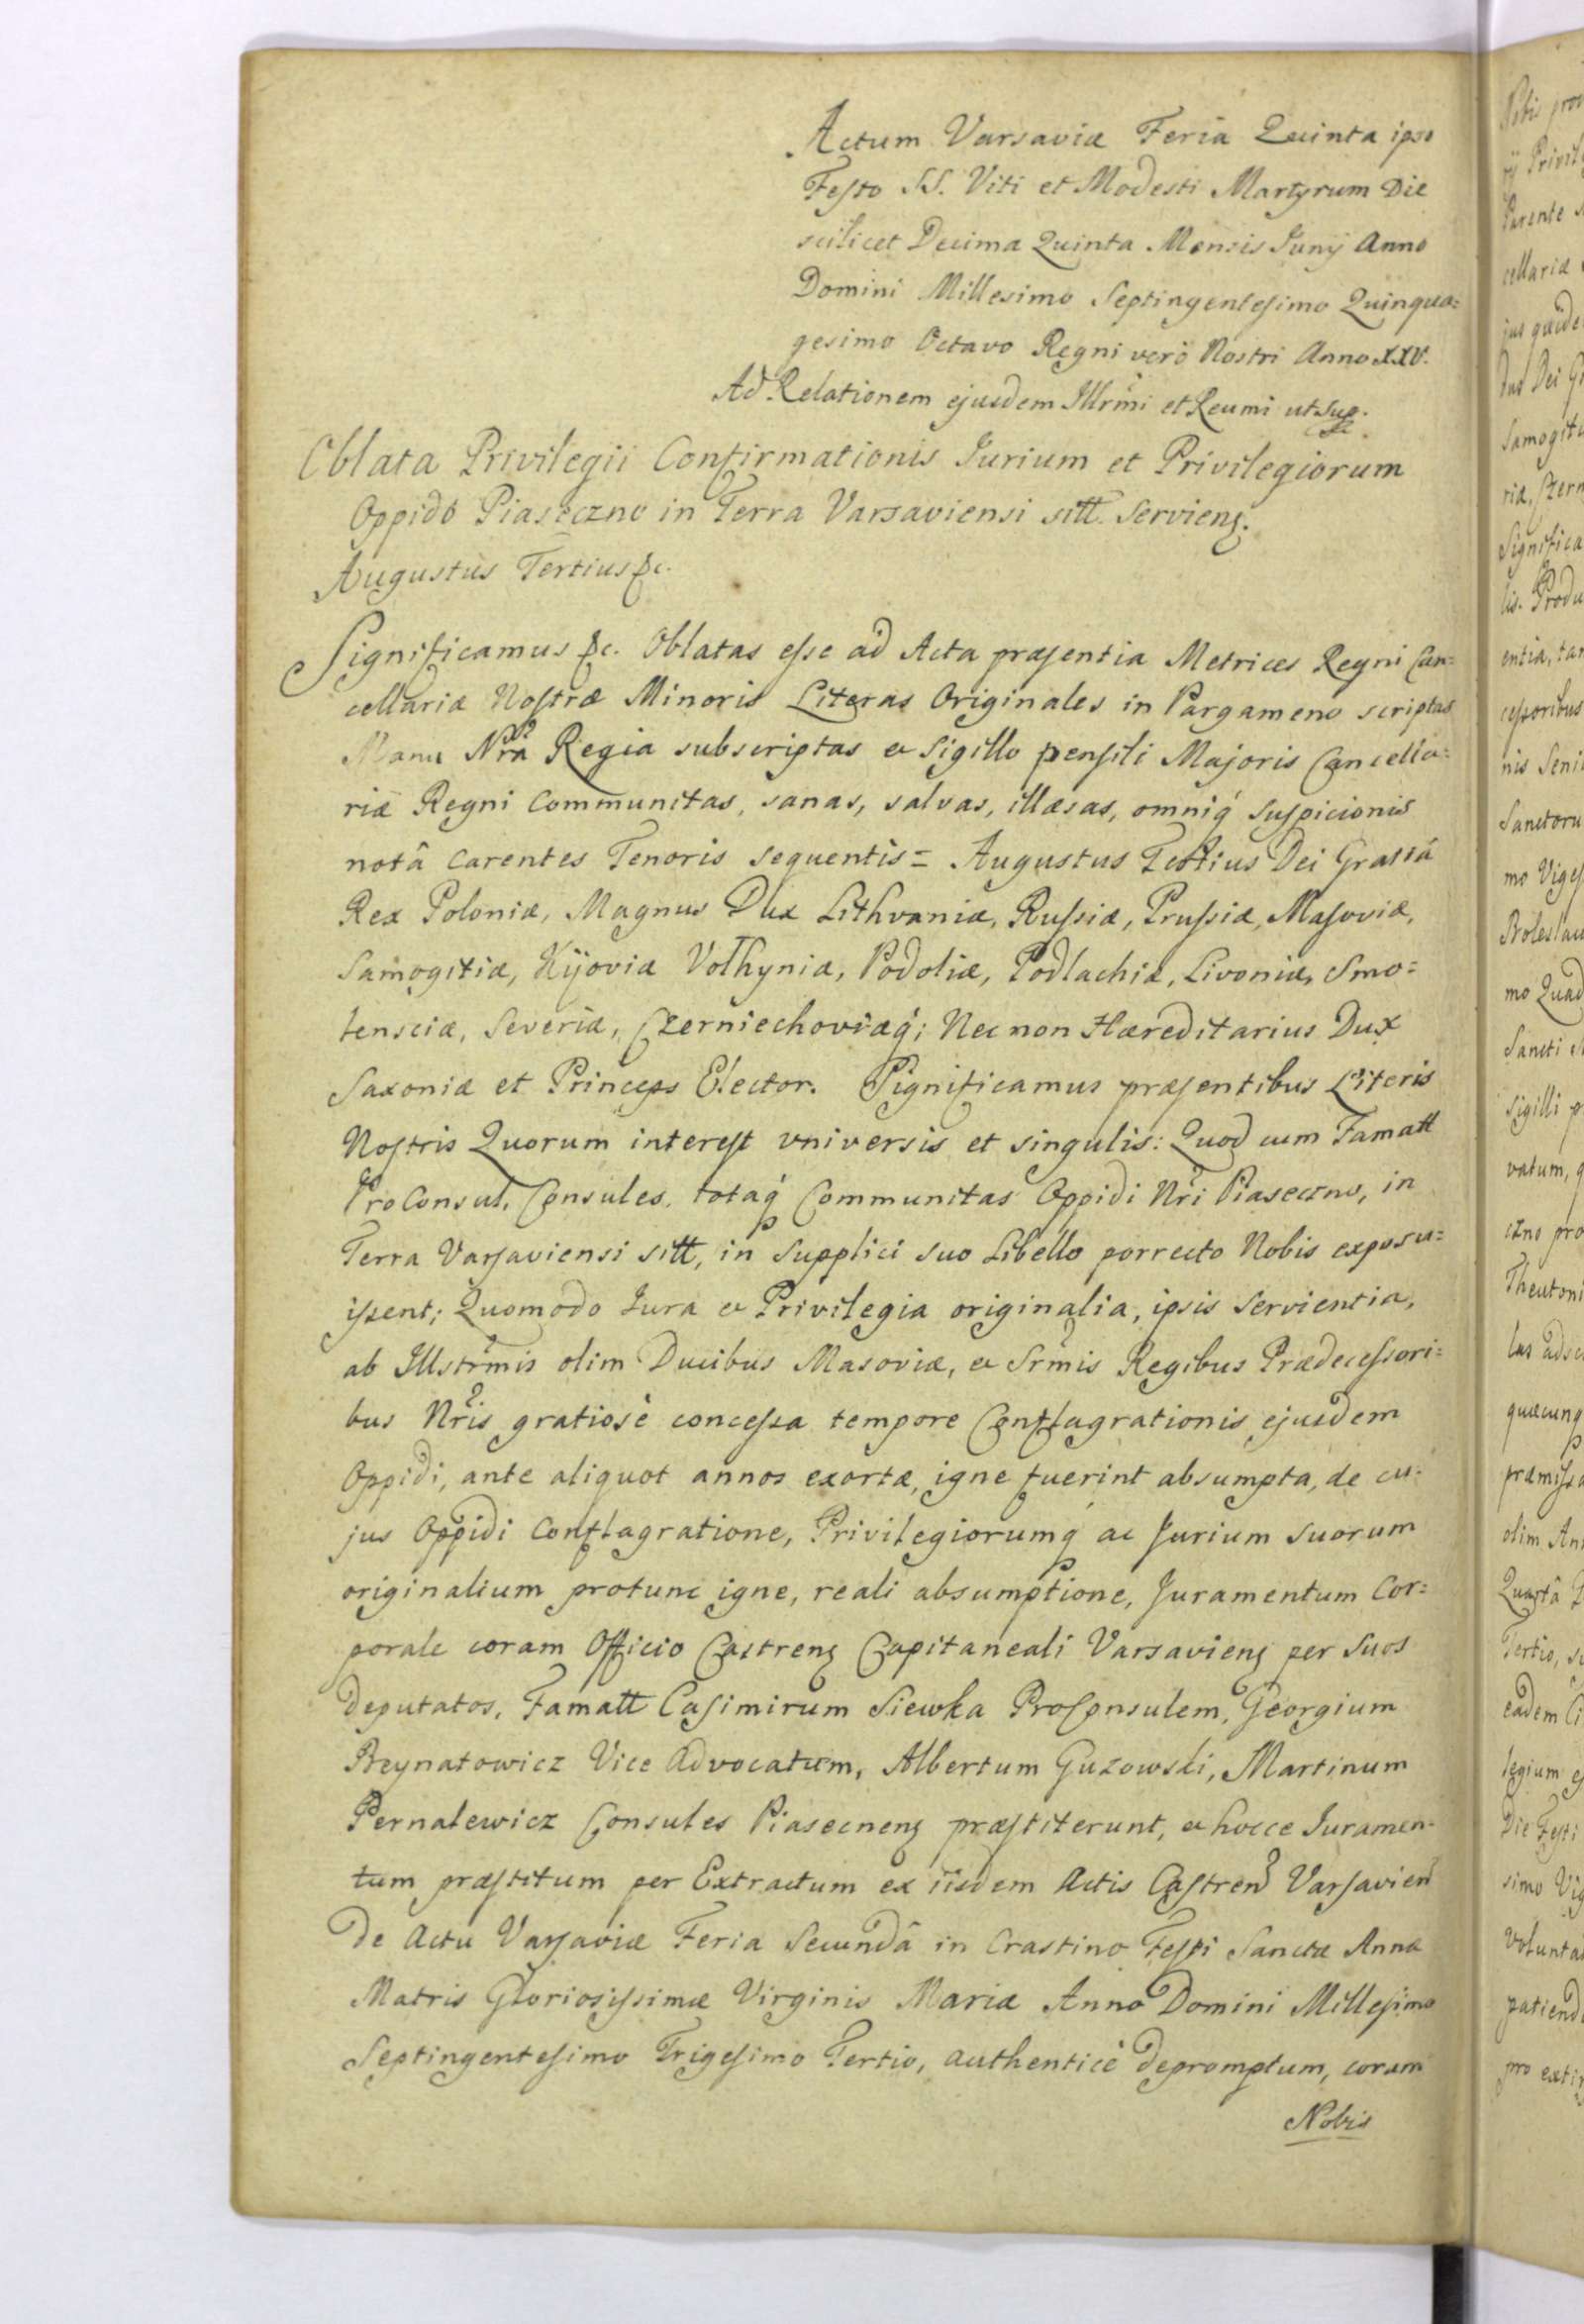 Actum Varsaviæ Feria Quinta ipso
Festo SS. Viti et Modesti Martyrum Die
scilicet Decima Quinta Mensis Junij Anno
Domini Millesimo Septingentesimo Quinqua=
gesimo Octavo Regni verò Nostri Anno XXV.
Ad Relationem ejusdem Illrmi et Reumi ut Sup.
Oblata Privilegii Confirmationis Iurium et Privilegiorum
Oppido Piaseczno in Terra Varsaviensi sitt. Servienȝ.
Augustus Tertius &c.
Significamus &c. Oblatas esse ad Acta præsentia Metrices Regni Can=
cellariæ Nostræ Minoris Literas Originales in Pargameno scriptas
Manu Nrã Regia subscriptas et Sigillo pensili Majoris Cancella=
riæ Regni Communitas, sanas, salvas, illæsas, omniq́ Suspicionis
notâ Carentes Tenoris sequentis = Augustus Tertius Dei Gratiâ
Rex Poloniæ, Magnus Dux Lithvaniæ, Russiæ, Prussiæ, Masoviæ,
Samogitiæ, Kijoviæ Volhyniæ, Podoliæ, Podlachiæ, Livoniæ, Smo=
lensciæ, Severiæ, Czerniechoviæq́; Nec non Hæreditarius Dux
Saxoniæ et Princeps Elector. Significamus præsentibus Literis
Nostris Quorum interest vniversis et singulis: Quod cum Famatt
ProConsul, Consules, totaq́ Communitas Oppidi Nri Piaseczno, in
Terra Varsaviensi sitt, in Supplici suo Libello porrecto Nobis exposu=
issent; Quomodo Iura et Privilegia originalia, ipsis Servientia,
ab Illstrmis olim Ducibus Masoviæ, et Srmis Regibus Prædecessori=
bus Nris gratiosè concessa tempore Conflagrationis ejusdem
Oppidi, ante aliquot annos exortæ, igne fuerint absumpta, de cu=
jus Oppidi Conflagratione, Privilegiorumq́ ac Jurium Suorum
originalium protunc igne, reali absumptione, Juramentum Cor=
porale coram Officio Castrenȝ Capitaneali Varsavienȝ per Suos
Deputatos, Famatt Casimirum Siewka ProConsulem, Georgium
Reynatowicz Vice Advocatum, Albertum Guzowski, Martinum
Pernalewicz Consules Piasecnenȝ præstiterunt, et hocce Iuramen=
tum præstitum per Extractum ex iisdem Actis Castren Varsavien
De Actu Varsaviæ Feria Secundâ in Crastino Festi Sanctæ Annæ
Matris Gloriosissimæ Virginis Mariæ Anno Domini Millesimo
Septingentesimo Trigesimo Tertio, authenticè depromptum, coram
Nobis